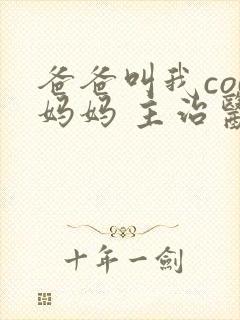 爸爸叫我co
妈妈 主治醫
十年一劍